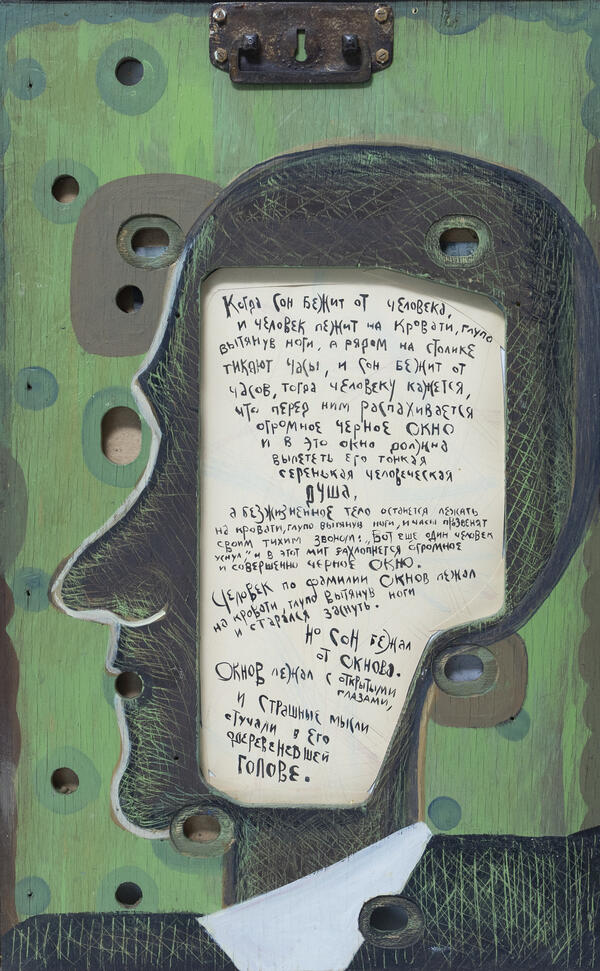 Когда Сон бежит от человека,
и человек лежит на кровати, глупо
вытянув ноги, а рядом на столике
тикают часы, и сон бежит от
часов, тогда человеку кажется,
что перед ним распахивается
огромное черное ОКНО
и в это окно должна
вылететь его тонкая
серенькая человеческая
ДУША,
а безжизненное тело останется лежать
на кровати, глупо вытянув ноги, и часы прозвенят
своим тихим звоном: „Вот еще один человек
уснул" и в этот миг захлопнется огромное
и совершенно черное ОКНО.
Человек по фамилии Окнов лежал
на кровати, глупо вытянув ноги
и старался заснуть.
Но Сон бежал
от Окнова.
Окнов лежал с открытыми
глазами,
и Страшные мысли
стучали в его
одеревеневшей
ГОЛОВЕ.